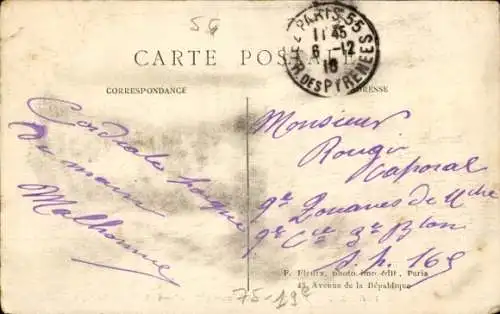 54
CARTE POSTALE
PARIS 55
11 45
6 - 12
16
R. DES PYRENEES
CORRESPONDANCE
ADRESSE
Cordiale poigné
de main
Malhomme
Monsieur
Rougir
Caporal
9e Zouaves de Mche
9e Cie 3e Blon
S. p. 165
F. Fleury, photo-imp-édit, Paris
45, Avenue de la République
75-19e